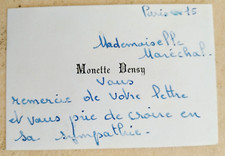 Paris 15
Mademoiselle
Maréchal.
Monette Densy
Vous
remercie de votre lettre
et vous prie de croire en
sa sympathie.